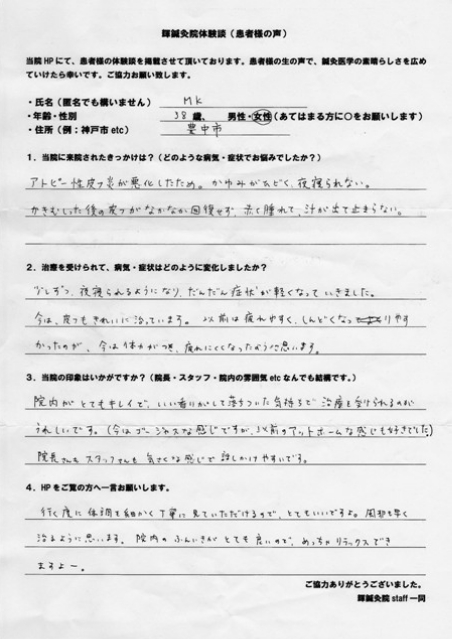 輝鍼灸院体験談（患者様の声）
当院HPにて、患者様の体験談を掲載させて頂いております。患者様の生の声で、鍼灸医学の素晴らしさを広め
ていけたら幸いです。ご協力お願い致します。
・氏名（匿名でも構いません） MK
・年齢・性別 38 歳、 男性・女性（あてはまる方に○をお願いします）
・住所（例：神戸市etc） 豊中市
1．当院に来院されたきっかけは？（どのような病気・症状でお悩みでしたか？）
アトピー性皮フ炎が悪化したため。かゆみがひどく、夜寝られない。
かきむしった後の皮フがなかなか回復せず、赤く腫れて、汁が出て止まらない。
2．治療を受けられて、病気・症状はどのように変化しましたか？
少しずつ、夜寝られるようになり、だんだん症状が軽くなっていきました。
今は、皮フもきれいに治っています。以前は疲れやすく、しんどくなりやす
かったのが、今は体力がつき、疲れにくくなったように思います。
3．当院の印象はいかがですか？（院長・スタッフ・院内の雰囲気etcなんでも結構です。）
院内がとてもキレイで、いい香りがして落ちついた気持ちで治療を受けられるのが
うれしいです。（今はゴージャスな感じですが、以前のアットホームな感じも好きでした）
院長さんもスタッフさんも気さくな感じで話しかけやすいです。
4．HPをご覧の方へ一言お願いします。
行く度に体調を細かく丁寧に見ていただけるので、とてもいいですよ。風邪も早く
治るように思います。院内のふんいきがとても良いので、めっちゃリラックスでき
ますよー。
ご協力ありがとうございました。
輝鍼灸院staff一同